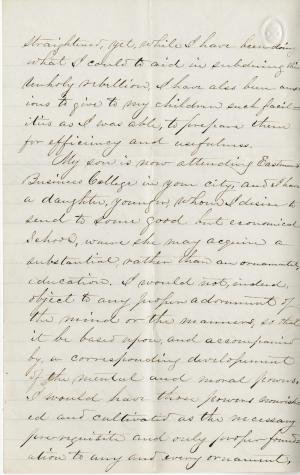 straightened, yet, while I have been doin
what I could to aid in subduing this
unholy rebellion, I have also been anx
ious to give to my children such facil
ities as I was able, to prepare them
for efficiency and usefulness.
My son is now attending Eastman
Business College in your city, and I have
a daughter, younger, whom I desire to
send to some good but economical
School, where she may acquire a
substantial, rather than an ornamental
education. I would not, indeed,
object to any proper adornment of
the mind or the manners, so that
it be based upon, and accompanied
by, a corresponding development
of the mental and moral powers.
I would have those powers nourish
ed and cultivated as the necessary
pre-requisite and only proper found
ation to any and every ornament.